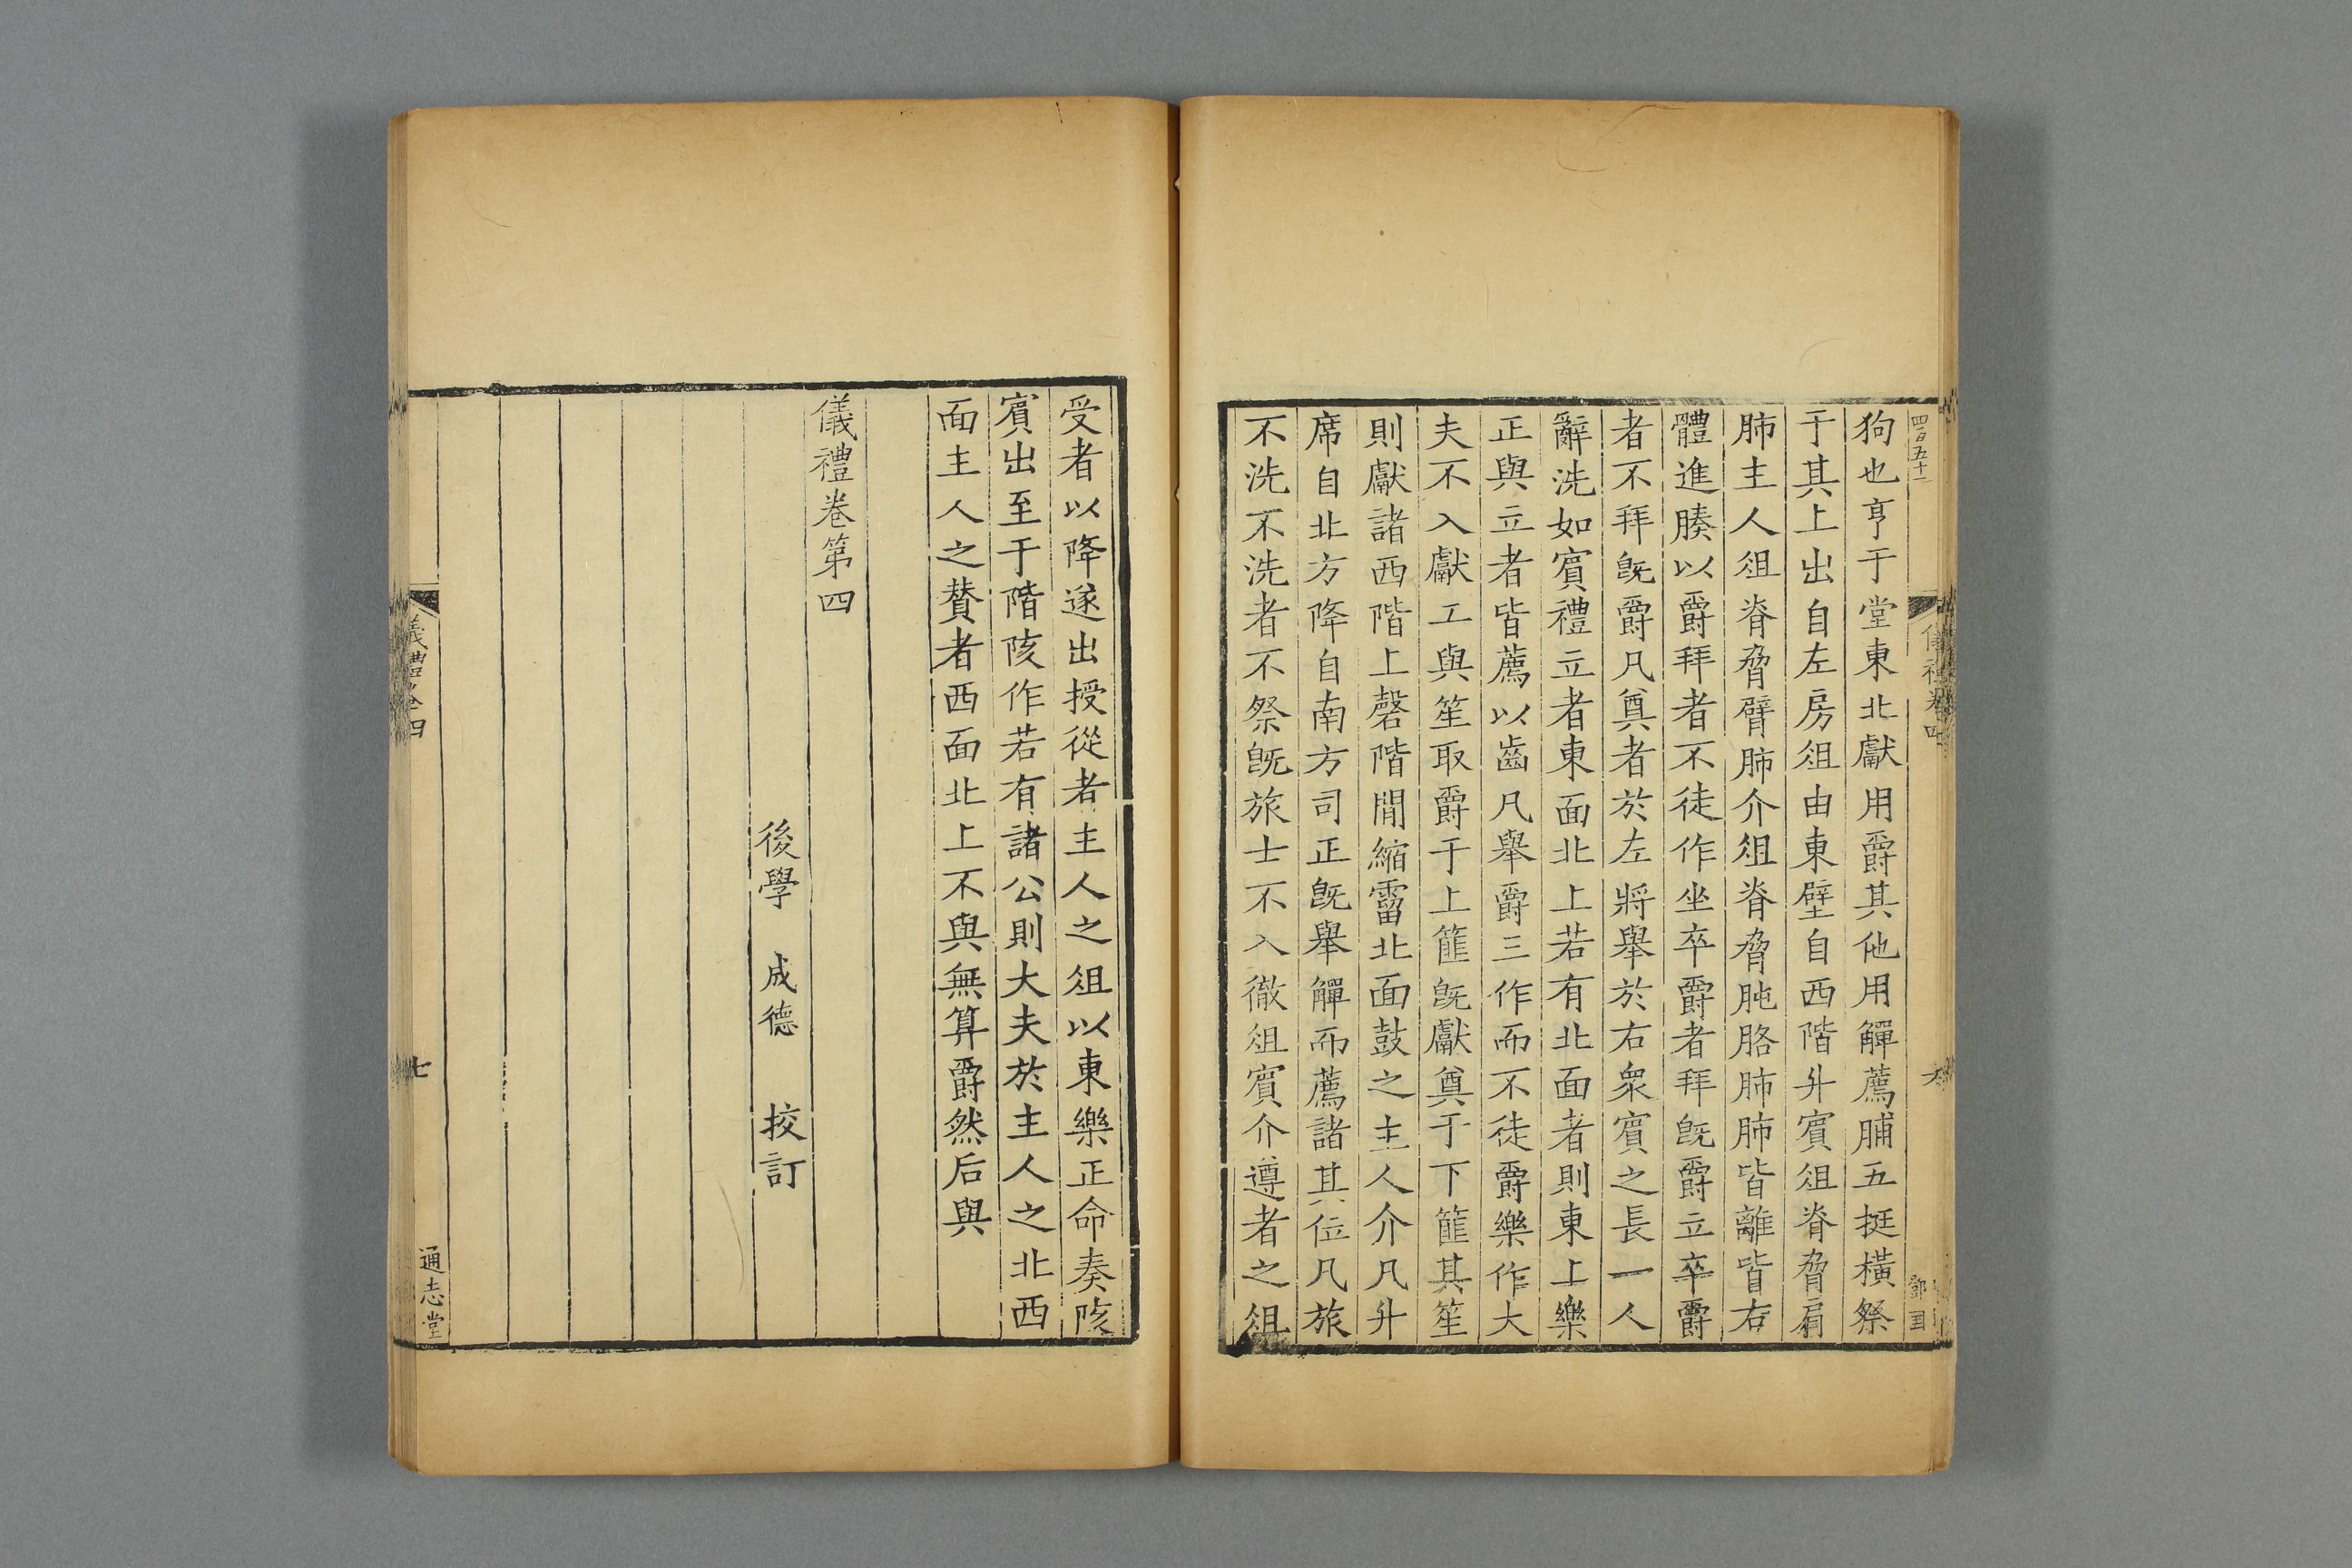 四百五十一
狗也亨于堂東北獻用爵其他用觶薦脯五挺橫祭
于其上出自左房俎由東壁自西階升賓俎脊脅肩
肺主人俎脊脅臂肺介俎脊脅肫胳肺肺皆離皆右
體進腠以爵拜者不徒作坐卒爵者拜旣爵立卒爵
者不拜旣爵凡奠者於左將舉於右衆賓之長一人
辭洗如賓禮立者東面北上若有北面者則東上樂
正與立者皆薦以齒凡舉爵三作而不徒爵樂作大
夫不入獻工與笙取爵于上篚旣獻奠于下篚其笙
則獻諸西階上磬階閒縮霤北面鼓之主人介凡升
席自北方降自南方司正旣舉觶而薦諸其位凡旅
不洗不洗者不祭旣旅士不入徹俎賓介遵者之俎
受者以降遂出授從者主人之俎以東樂正命奏陔
賓出至于階陔作若有諸公則大夫於主人之北西
面主人之賛者西面北上不與無算爵然后與
儀禮卷第四
後學 成德 挍訂
儀禮卷四
七
通志堂